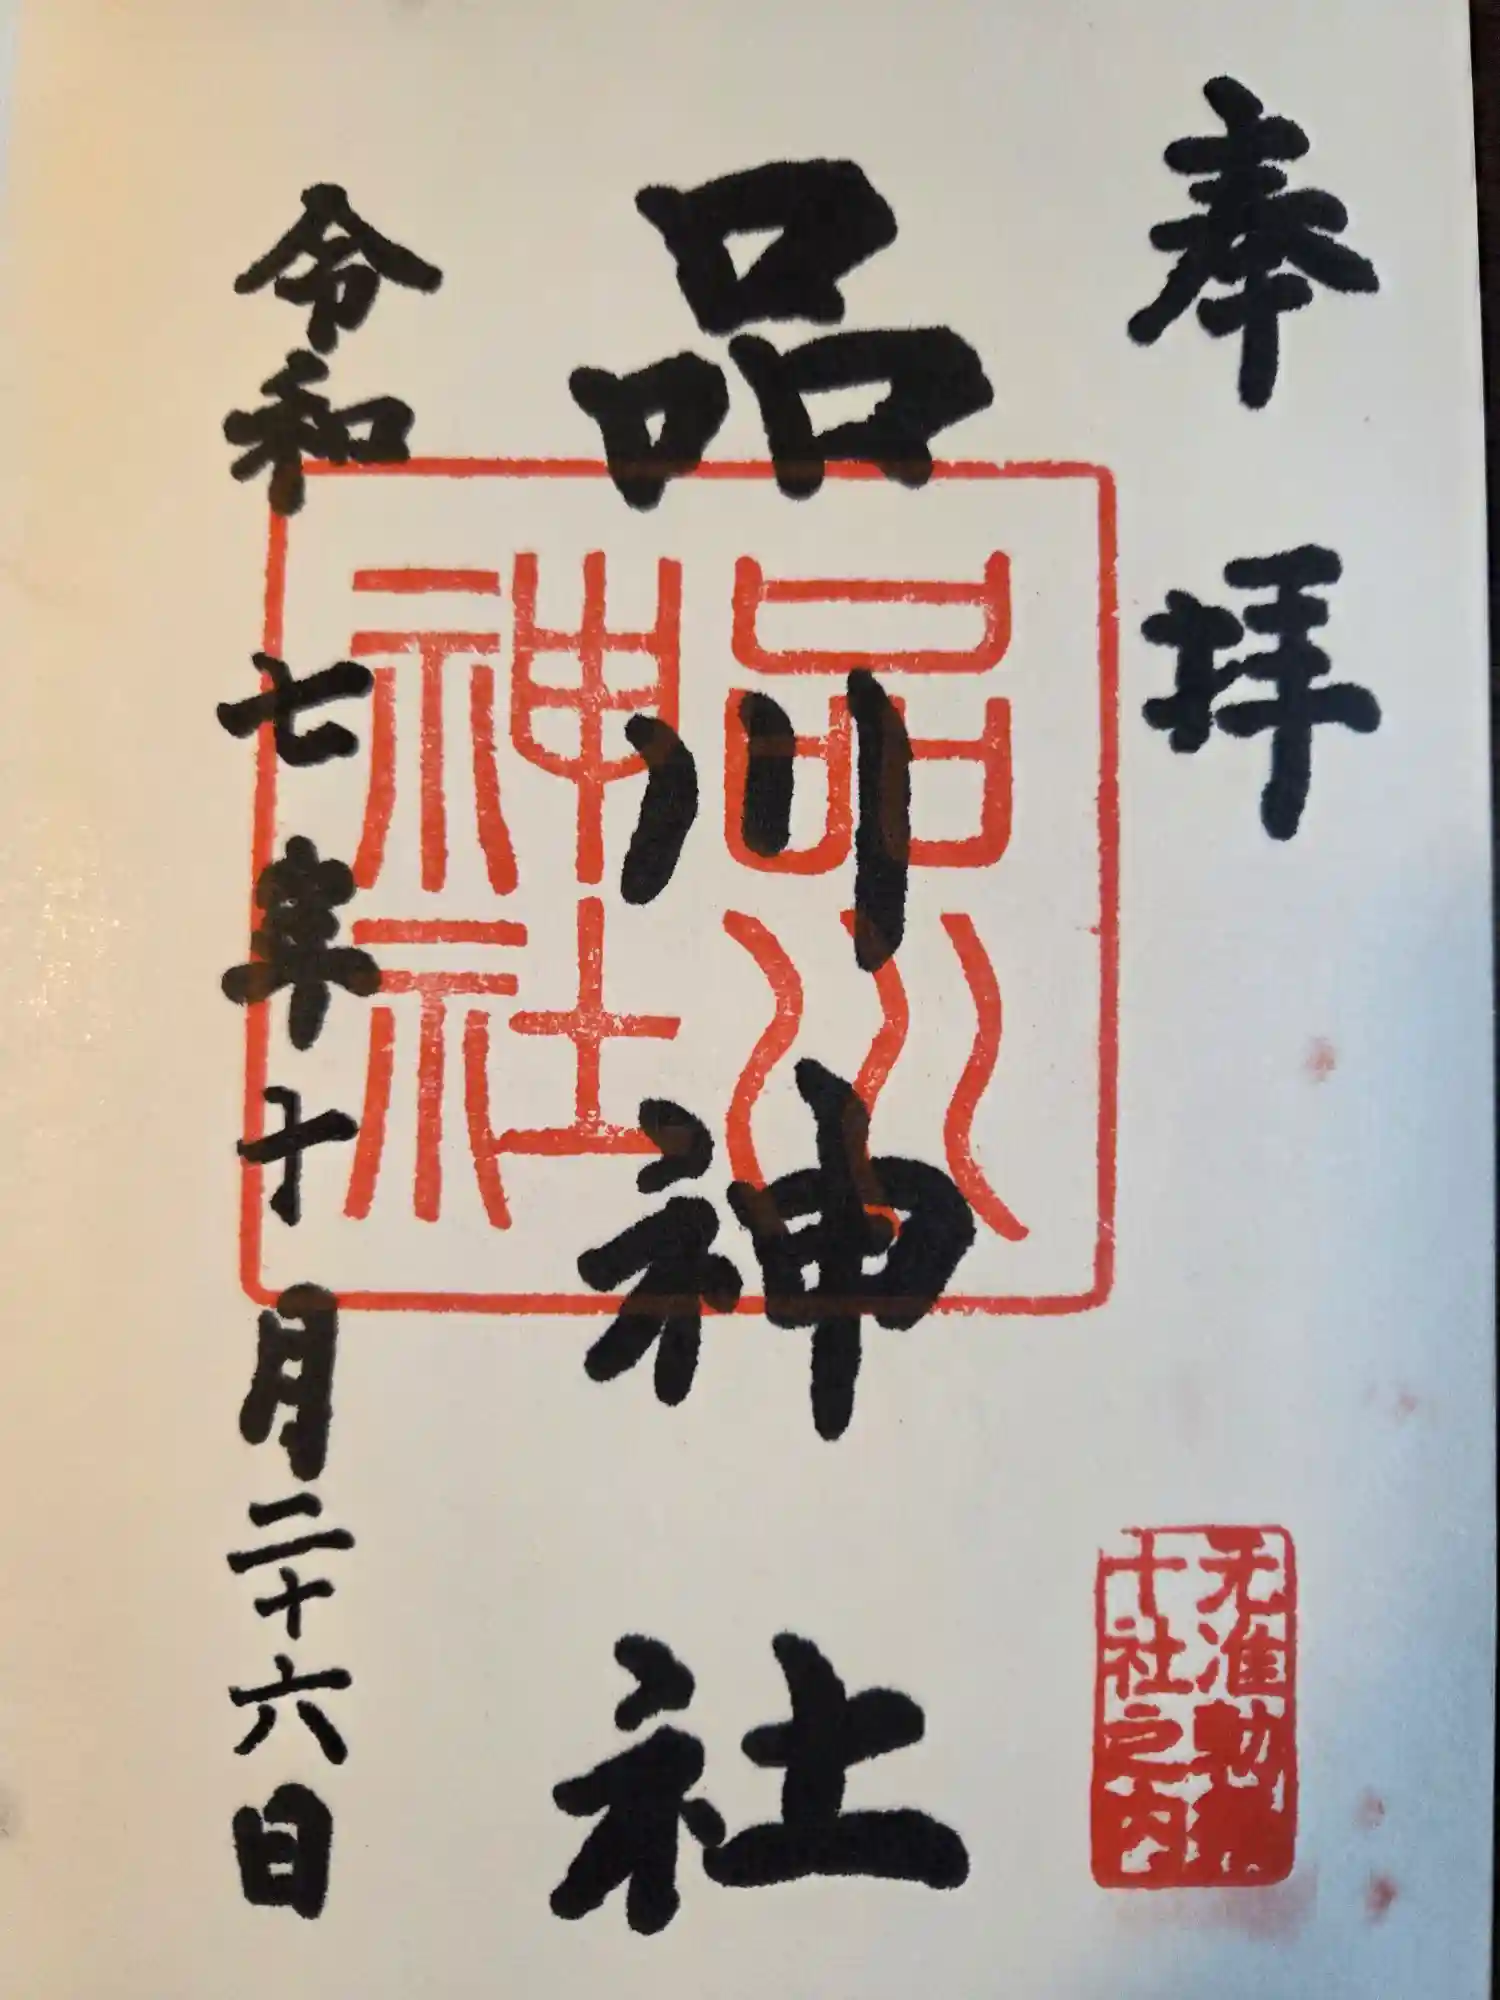 奉拝
品川神社
品川
神社
令和七年十月二十六日
元准勅
十社之内